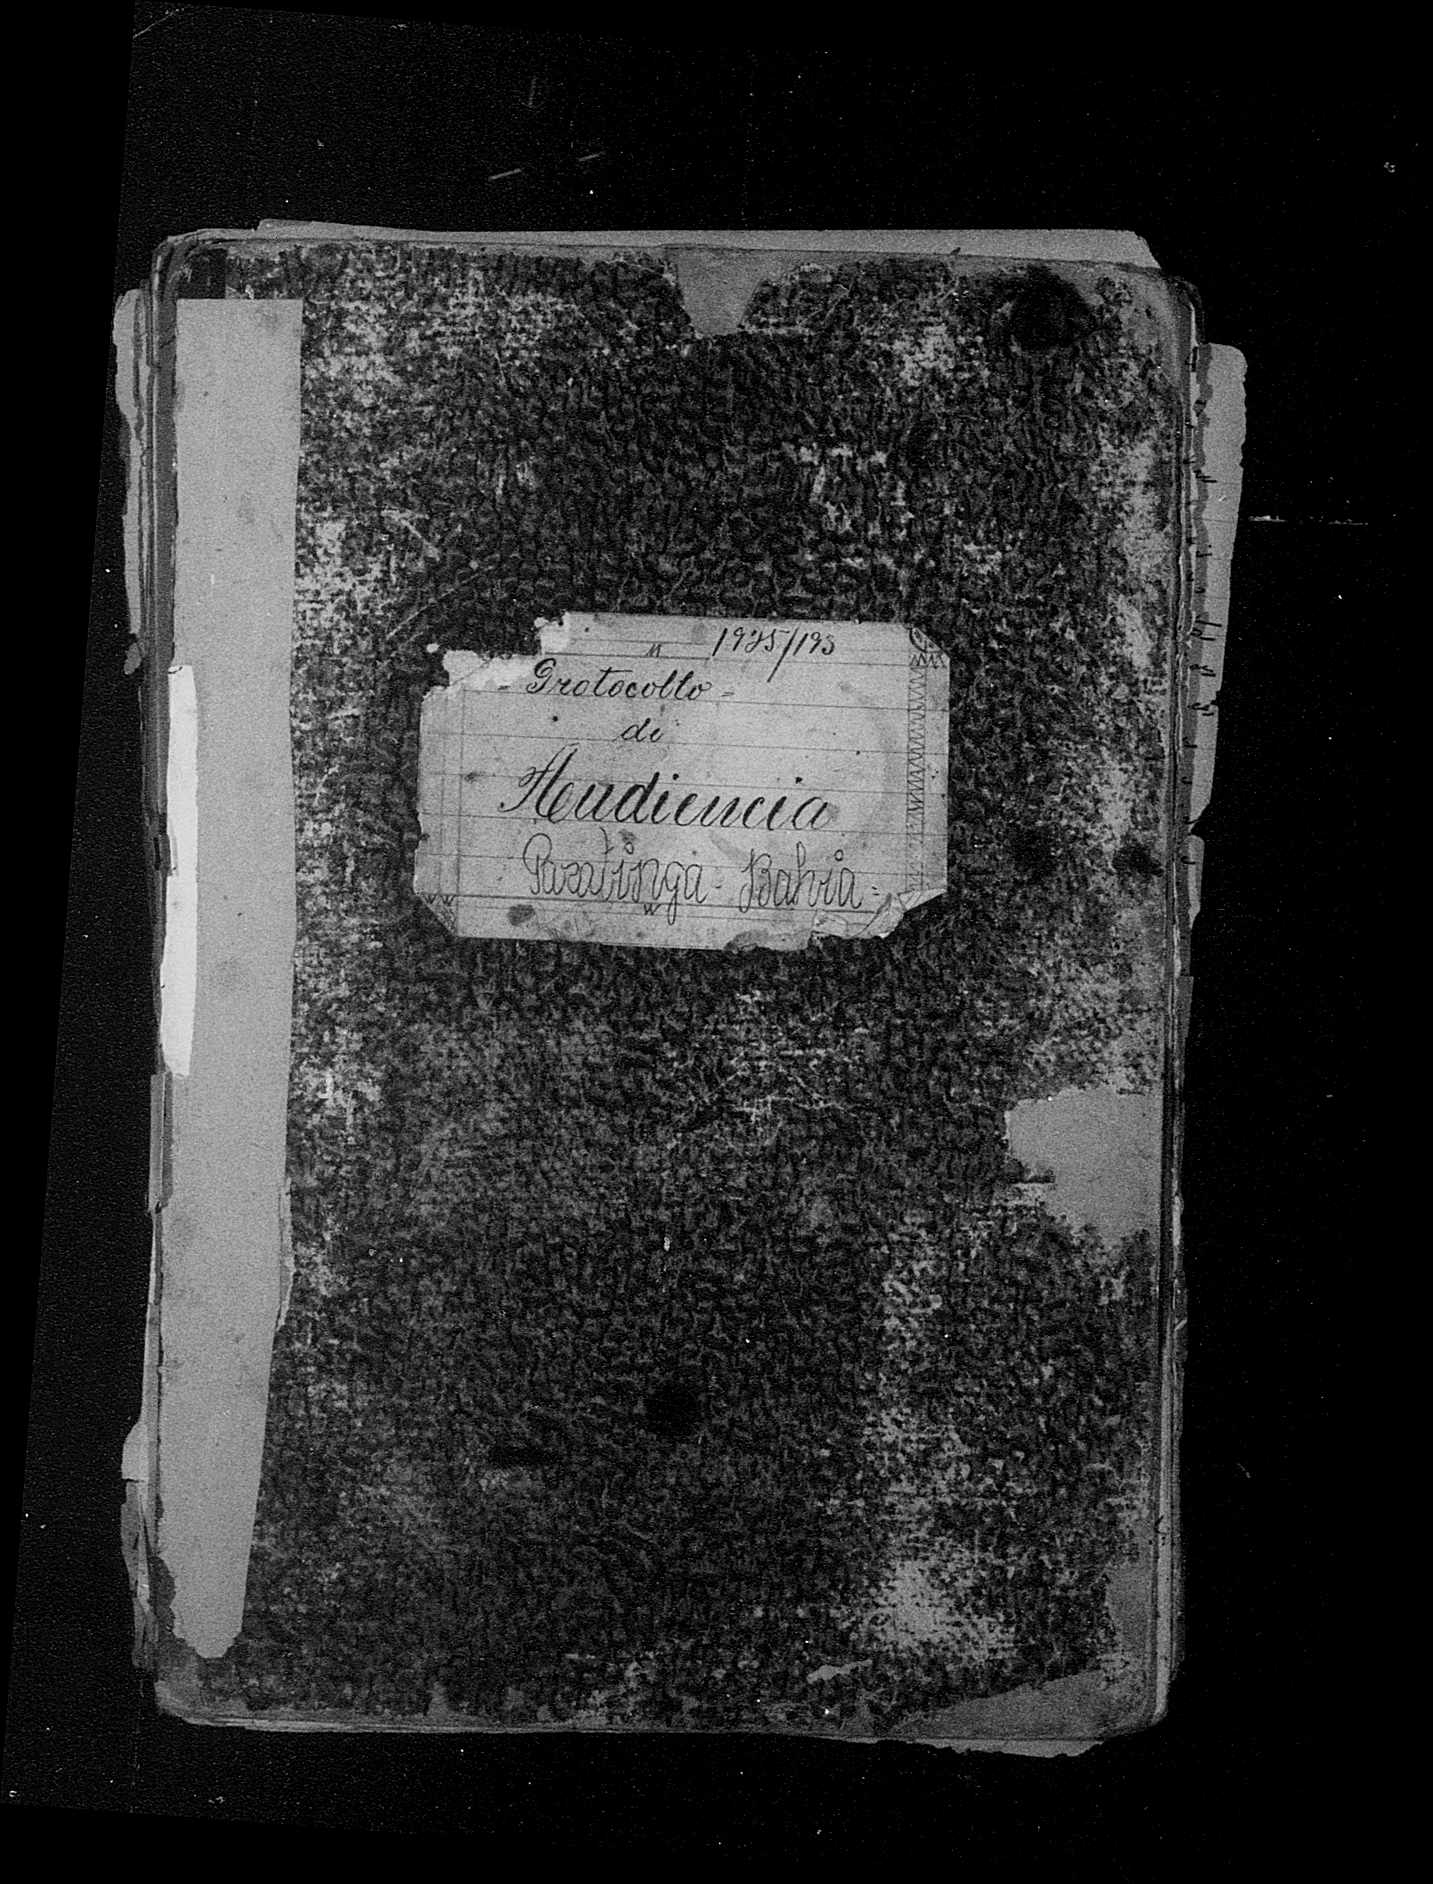 1925/193
- Protocollo -
de
Audiencia
Paratinga - Bahia =